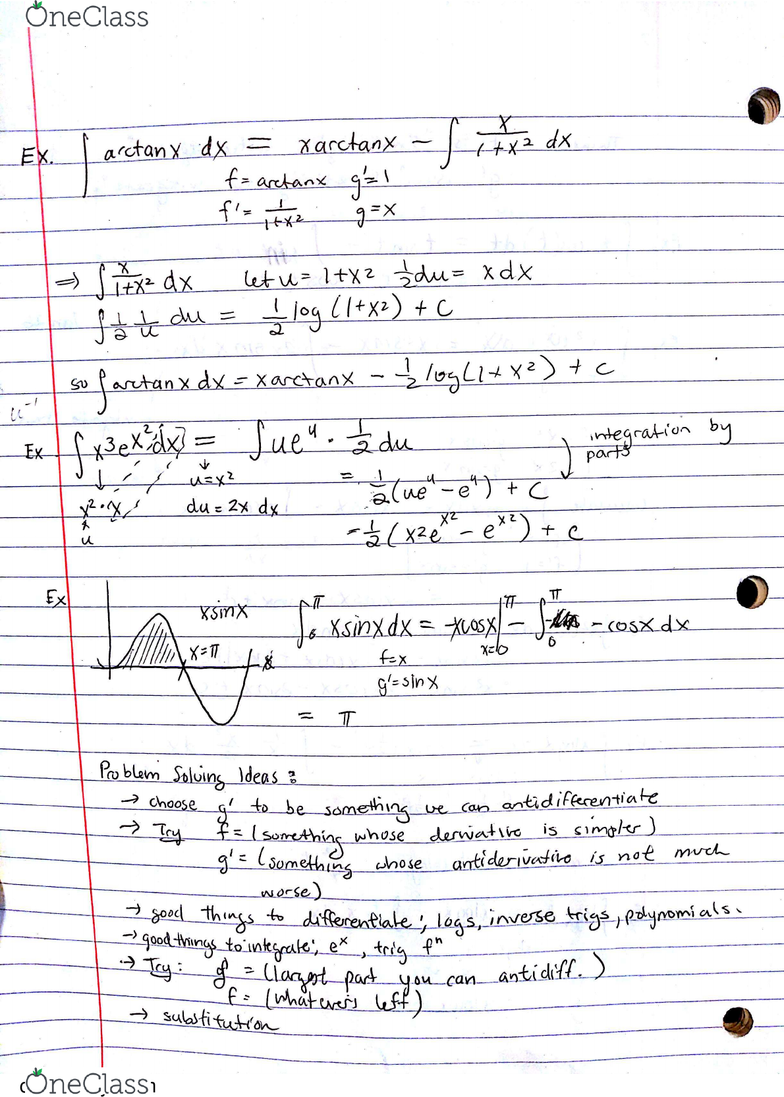 OneClass
Ex. ∫ arctanx dx = xarctanx - ∫ x/(1+x²) dx
f = arctanx g' = 1
f' = 1/(1+x²) g = x
⇒ ∫ x/(1+x²) dx let u = 1+x² ½du = xdx
∫ ½ 1/u du = ½ log(1+x²) + C
so ∫ arctanx dx = xarctanx - ½ log(1+x²) + c
u⁻¹
Ex ∫ x³e^x² dx = ∫ ue^u · ½ du
integration by
parts
↓ u=x² = ½(ue^u - e^u) + C
x²·x du = 2x dx
↑ u = ½(x²e^x² - e^x²) + c
Ex xsinx ∫₀^π xsinxdx = -xcosx|_{x=0}^π - ∫₀^π -cosx dx
x=π x f=x
g'=sinx
= π
Problem Solving Ideas :
→ choose g' to be something we can antidifferentiate
→ Try f = (something whose derivative is simpler)
g' = (something whose antiderivative is not much
worse)
→ good things to differentiate; logs, inverse trigs, polynomials.
→ good things to integrate; eˣ, trig fⁿ
→ Try: g' = (largest part you can antidiff.)
f = (whatever's left)
→ substitution
OneClass